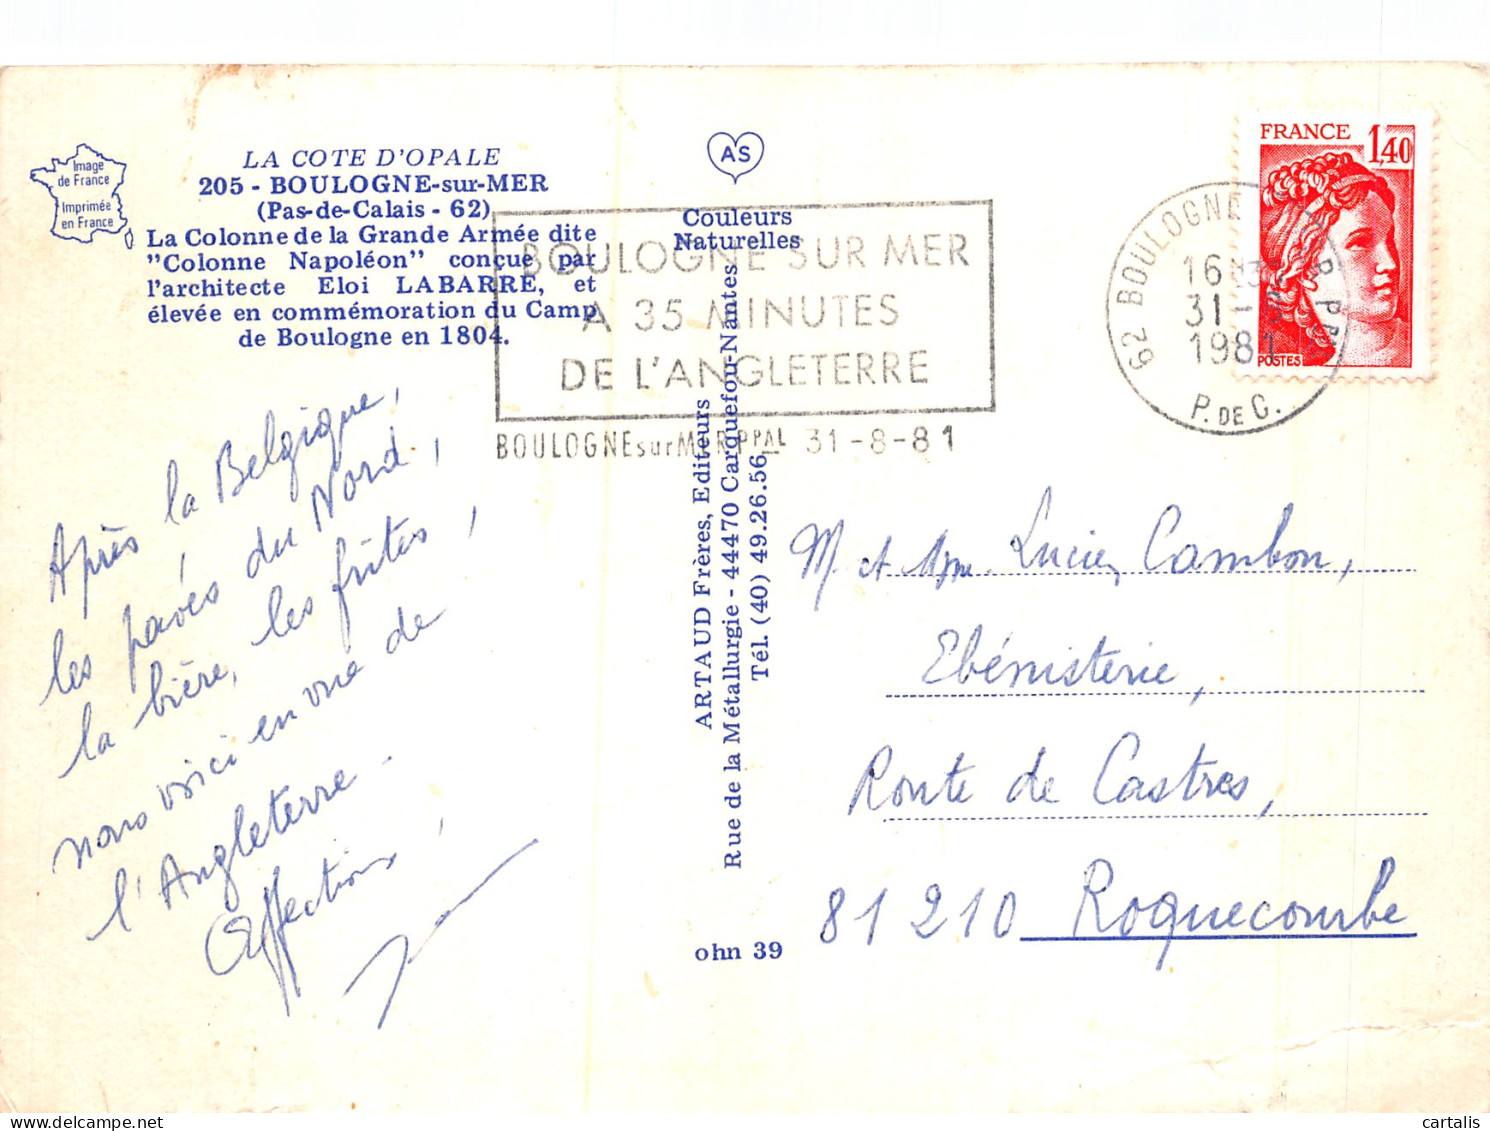 Image
de France
Imprimée
en France
LA COTE D'OPALE
205 - BOULOGNE-sur-MER
(Pas-de-Calais - 62)
La Colonne de la Grande Armée dite
"Colonne Napoléon" conçue par
l'architecte Eloi LABARRE, et
élevée en commémoration du Camp
de Boulogne en 1804.
AS
Couleurs
Naturelles
BOULOGNE SUR MER
A 35 MINUTES
DE L'ANGLETERRE
BOULOGNE sur MER PPAL 31-8-81
FRANCE 1,40
POSTES
62 BOULOGNE
16
31
1981
P. DE C.
Après la Belgique,
les pavés du Nord,
la bière, les frites,
nous voici en vue de
l'Angleterre -
Affections,
ARTAUD Frères, Editeurs
Rue de la Métallurgie - 44470 Carquefou-Nantes
Tél. (40) 49.26.56
ohn 39
M. et Mme Lucien Cambon,
Ebénisterie,
Route de Castres,
81210 Roquecourbe
cartalis